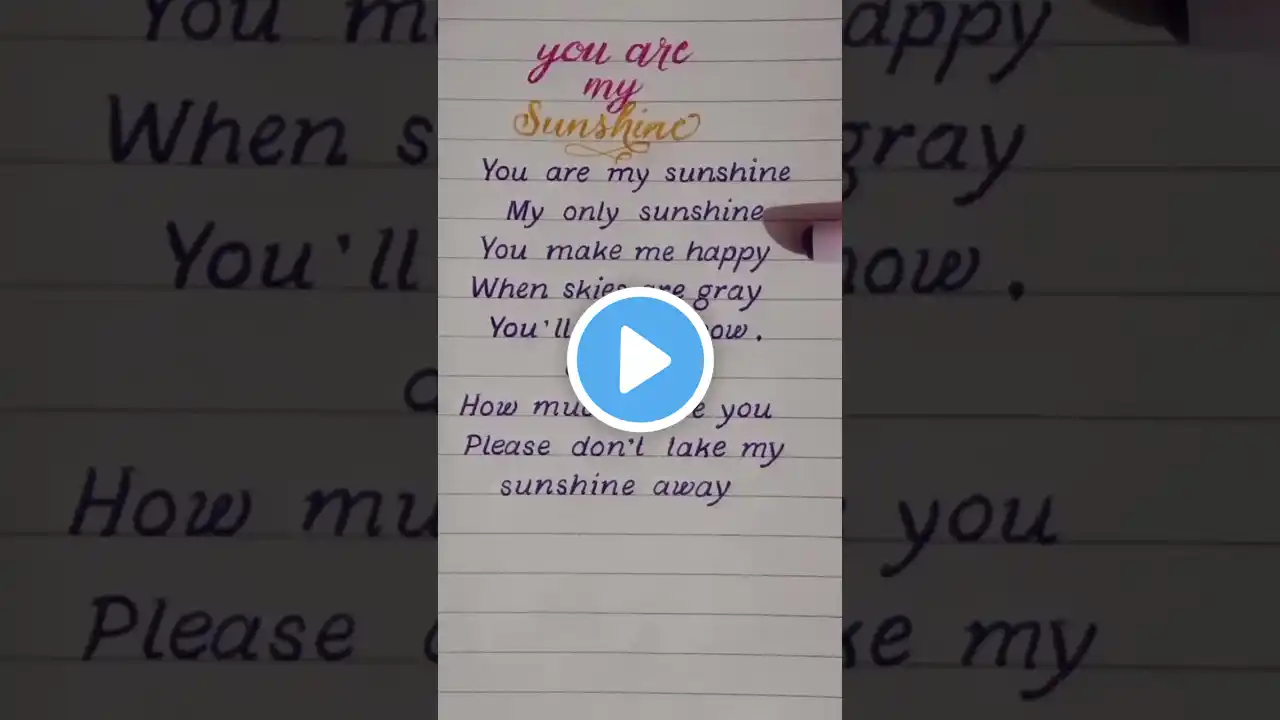 you are
my
Sunshine
You are my sunshine
My only sunshine
You make me happy
When skies are gray
You'll
How you
Please don't take my
sunshine away